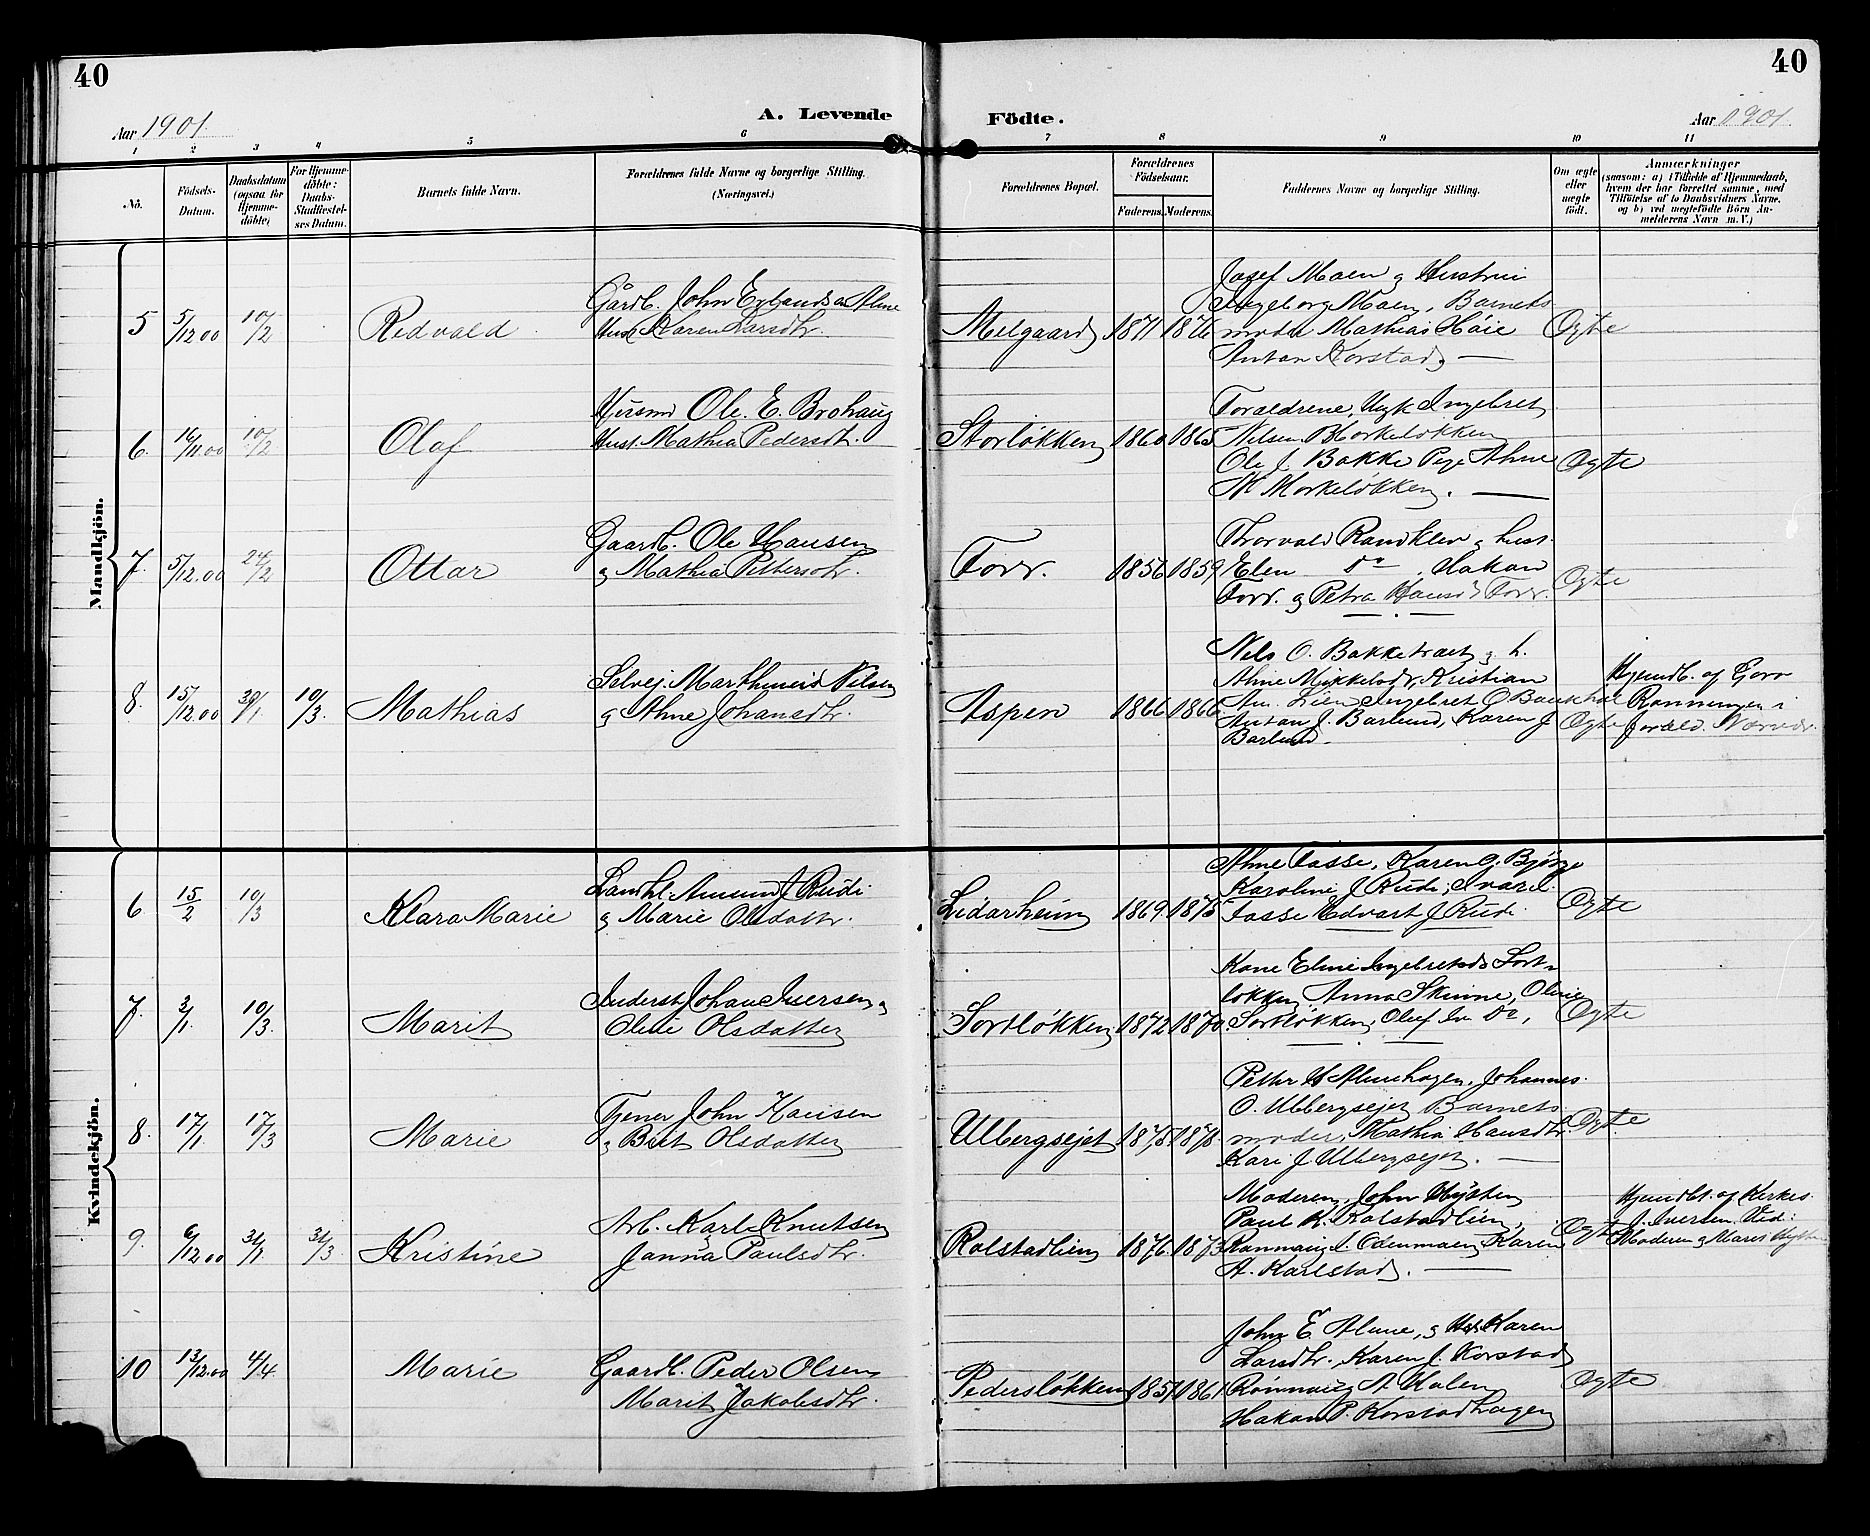 40
40
A. Levende
Födte.
Aar 1901.
Aar 1901.
1 2 3 4 5 6 7 8 9 10 11
No.
Födsels-
Datum.
Daabsdatum
(ogsaa for
Hjemme-
döbte)
For Hjemme-
döbte:
Daabs-
Stadfæstel-
ses Datum.
Barnets fulde Navn.
Forældrenes fulde Navne og borgerlige Stilling.
(Næringsvei.)
Forældrenes Bopæl.
Forældrenes
Födselsaar.
Faderens. Moderens.
Faddernes Navne og borgerlige Stilling.
Om ægte
eller
uægte
födt.
Anmærkninger
(saasom: a) i Tilfælde af Hjemmedaab,
hvem der har forrettet samme, med
Tilföielse af to Daabsvidners Navne.
og b) ved uægtefödte Börn An-
melderens Navn m. V.)
Mandkjön.
5 5/12 00 10/2 Redvald
Gårdb. John Erlandsen Alme
Hust. Karen Larsdtr.
Melgaard 1871 1876
Josef Moen og Hustrui
Ingeborg Moen, Barnets
moder Mathias Høie
Anton Korstad
Ogte
6. 16/11.00 10/2 Olaf
Ole. E. Brohaug
Hust. Mathia Pedersdtr.
Storløkken 1860 1865
Foraeldrene, Ungk Ingebret
Nielsen Morkeløkken
Ole J. Bakke Pige Ahne
M Morkeløkken.
Ogte
7. 5/12.00 24/2 Ottar
Gaardb. Ole Hansen
og Mathia Pettersdtr.
Forr. 1856 1859
Thorvald Randklev og hust.
Elen do, Hakon
Forr. og Petra Hansd. Forr.
Ogte
8. 15/12.00 30/1. 10/3. Mathias
Selvej. Marthinus Nilsen
og Ahne Johansdtr.
Aspen 1866 1866
Nels O. Bakketraet og h.
Ahne Mikkelsdr, Kristian
An. Lien Ingebret O Baukhol
Antan J. Barlund, Karen J
Barlund.
Ogte
Hjemdb. af Goro
Ranningen i
foræld. Nærvær.
Kvindekjön.
6 15/2 10/3 Klara Marie
Landhl. Amund J Rudi
og Marie Olsdattr.
Lidarheim 1869. 1875
Ahne Tasse, Karen G. Bjørge
Karoline J Rudi, Ivar L.
Tasse Edvart J Rudi.
Ogte
7. 3/1. 10/3. Marit
Inderst Johan Iversen og
Oline Olsdatter
Sortløkken 1872. 1870.
Kone Eline Ingebretsd. Sort-
løkken, Anna Skinne, Oline
Sortløkken, Oluf Iv Do,
Ogte
8. 17/1. 10/3 Marie
Tjener John Hansen
og Brit Olsdatter
Ulbergsejet 1875 1878.
Petter H Almehagen, Johannes
O. Ulbergsejet Barnets
moder, Mathia Hansdtr.
Kari J Ulbergsejet.
Ogte
9. 6/12 00 31/1. 31/3. Kristine
Arb. Karl Knutsen
Janna Paulsdtr.
Rolstadlien 1876. 1873
Moderen, John Hytten
Paul K. Rolstadlien,
Rannaug J. Odenmoen, Karen
A. Karlstad.
Ogte
Hjemdbt. af Kirkes.
J. Iversen. Vid:
Moderen og Mares Hytten
10 13/12.00 4/4 Marie
Gaardb. Peder Olsen
Marit Jakobsdtr.
Pedersløkken 1851 1861
John E. Alme, og Hst. Karen
Larsdtr. Karen J. Korstad
Rønnaug A Holen
Hakon P. Korstadhagen
Ogte